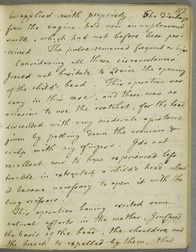 be applied with propriety. The discharge
from the vagina had now an unpleasant
smell, which had not before been per-
ceived. The pulse remained frequent &
Considering all these circumstances, I
did not hesitate to advise the opening
of the child's head. This operation was
easy in this case, and there was no
occasion to use the crotchet, for the head
descended with very moderate assistance
given by pulling down the cranium &
scalp with my fingers. I do not
recollect ever to have experienced less
trouble in extracting a child's head when
it became necessary to open it with the
long scissors.
This operation having excited some
natural efforts in the mother,
the basis of the head, the shoulders, and
the breech to be expelled by them, that